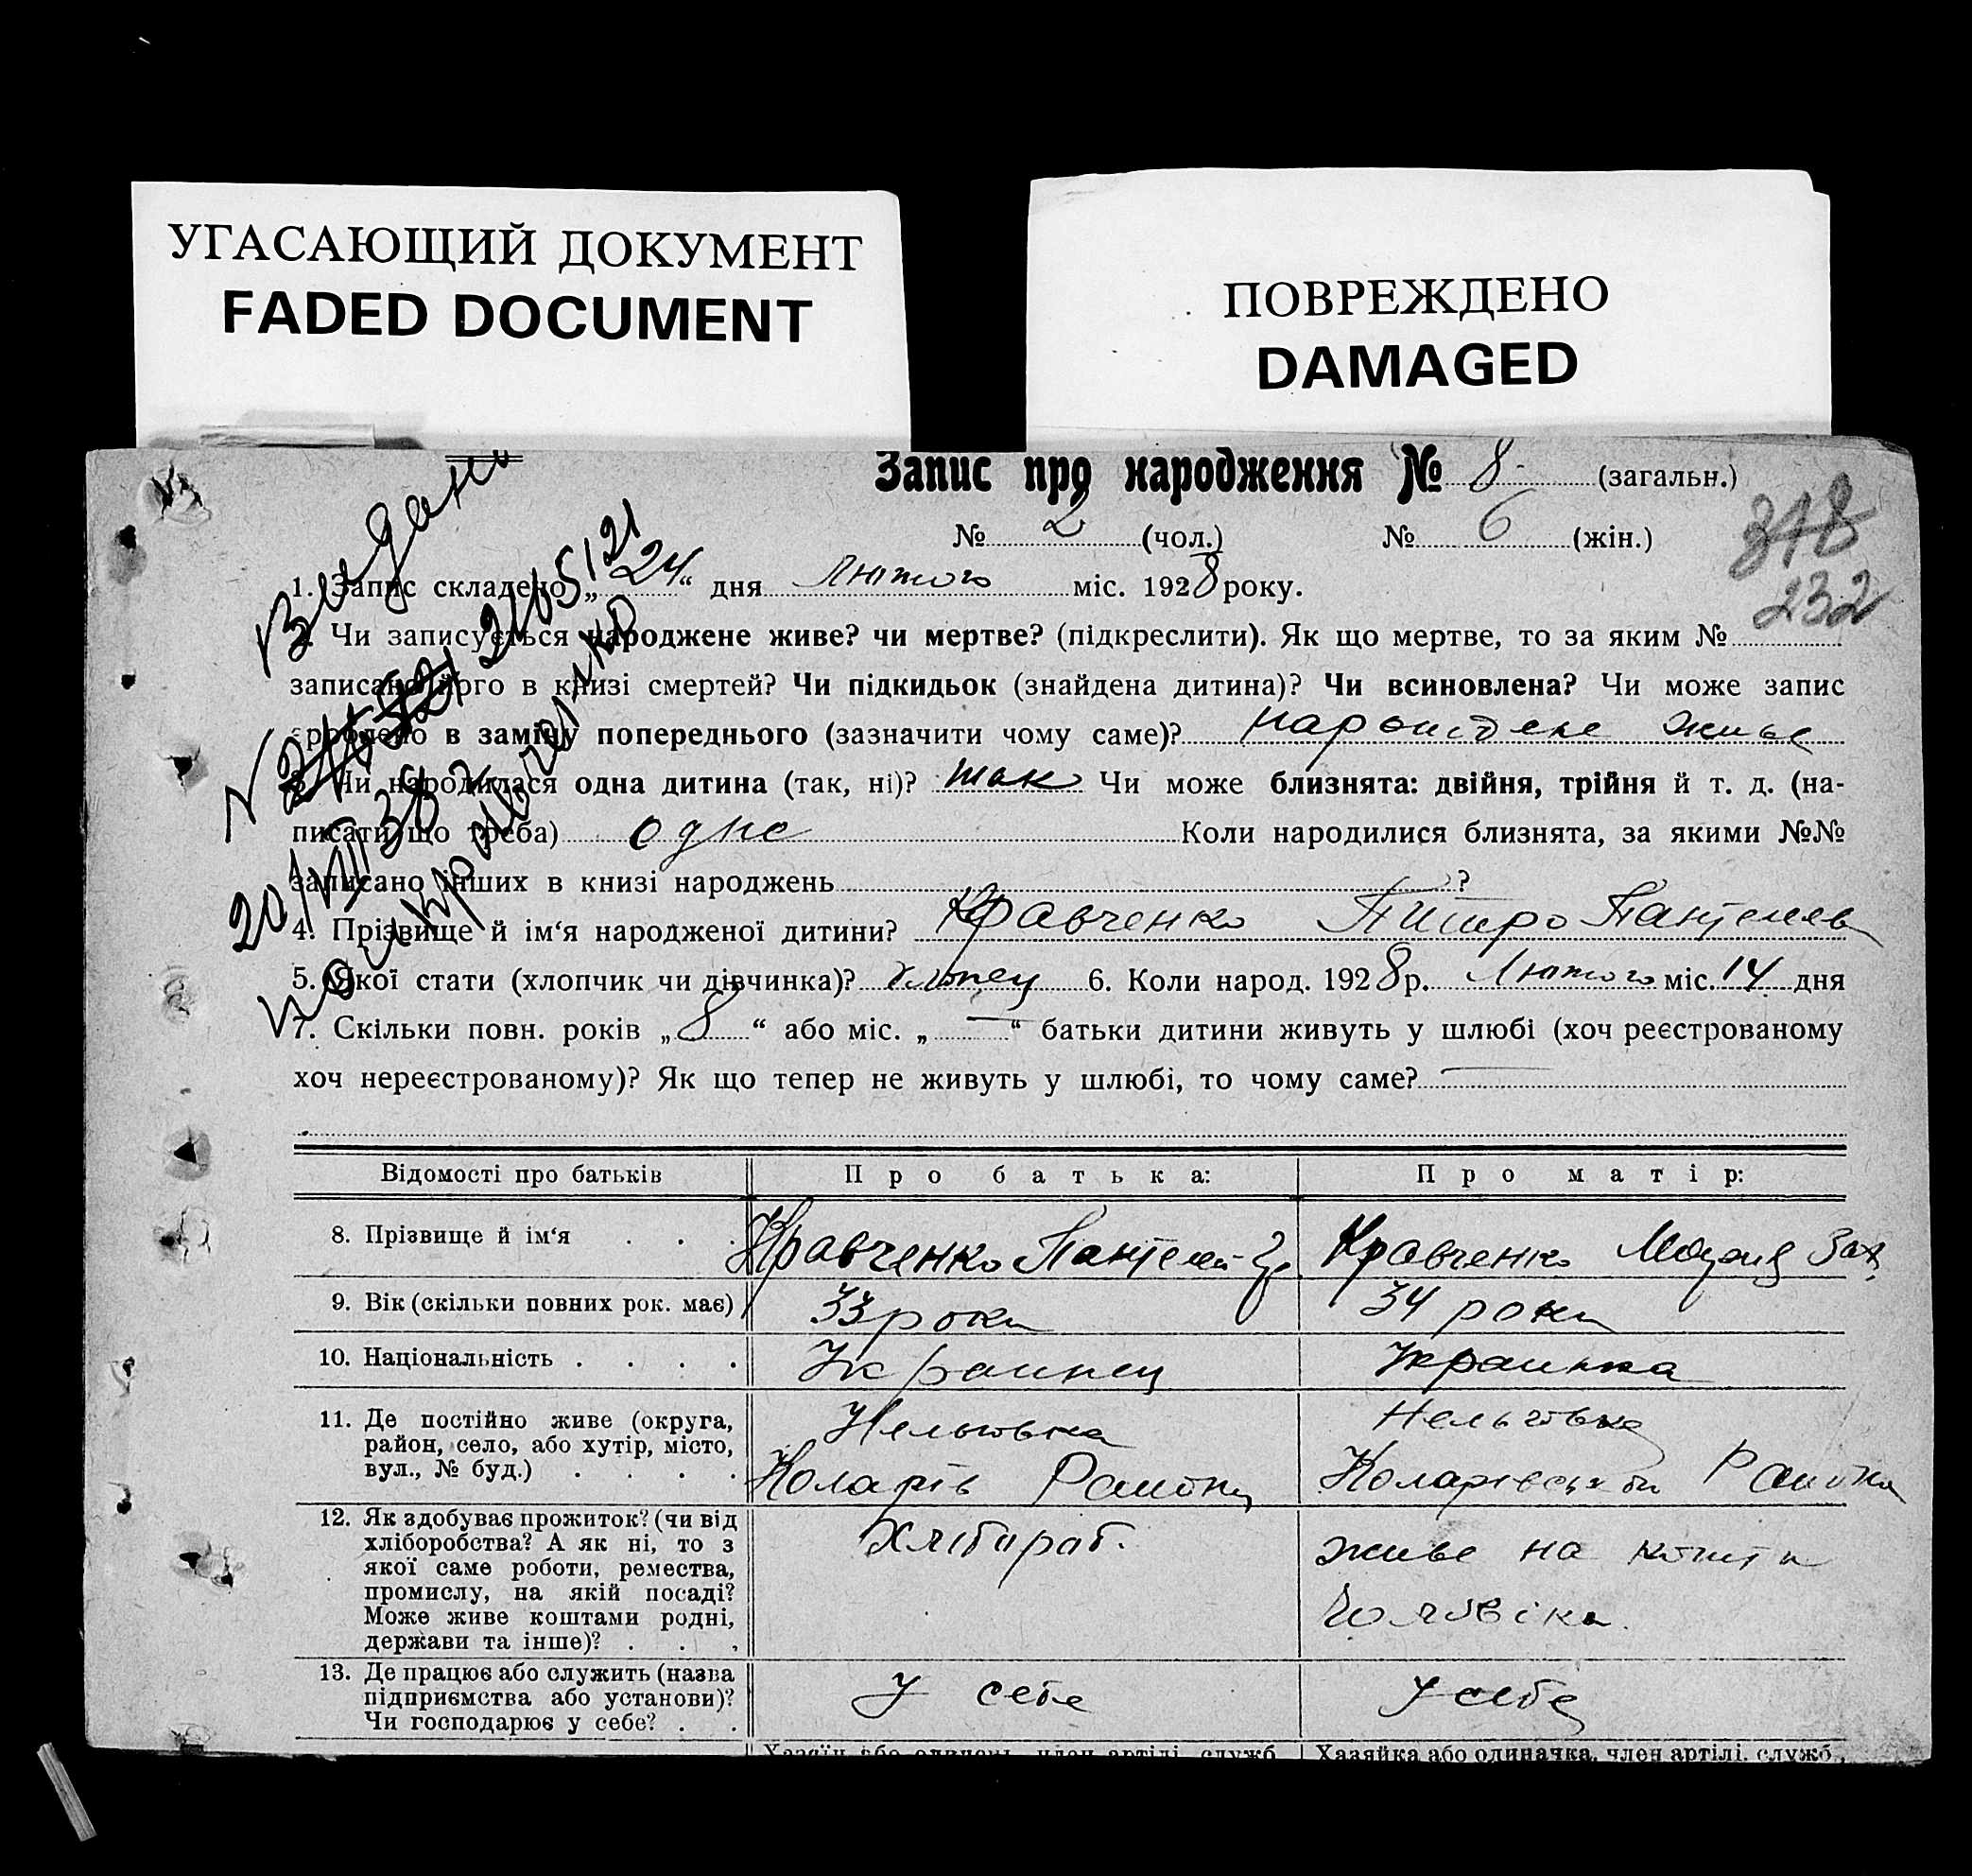 УГАСАЮЩИЙ ДОКУМЕНТ
FADED DOCUMENT
ПОВРЕЖДЕНО
DAMAGED
Запис про народження № 8 (загальн.)
№ 2 (чол.) № 6 (жін.)
318
232
1. Запис складено „24“ дня Лютого міс. 1928 року.
Чи записується народжене живе? чи мертве? (підкреслити). Як що мертве, то за яким №
записано його в книзі смертей? Чи підкидьок (знайдена дитина)? Чи всиновлена? Чи може запис
зроблено в заміну попереднього (зазначити чому саме)? народжене живе
3. Чи народилася одна дитина (так, ні)? так Чи може близнята: двійня, трійня й т. д. (на-
писати що треба) одне Коли народилися близнята, за якими №№
записано інших в книзі народжень ?
4. Прізвище й ім‘я народженої дитини? Кравченко Питро Пантелев
5. Якої стати (хлопчик чи дівчинка)? хлопец 6. Коли народ. 1928 р. Лютого міс. 14 дня
7. Скільки повн. років „8“ або міс. „—“ батьки дитини живуть у шлюбі (хоч реєстрованому
хоч нереєстрованому)? Як що тепер не живуть у шлюбі, то чому саме? —
Видано
20/VII 38
Відомості про батьків Про батька: Про матір:
8. Прізвище й ім‘я . . . Кравченко Пантелей Кравченко Мария Зах
9. Вік (скільки повних рок. має) 33 роки 34 роки
10. Національність . . . . Украинец Украинка
11. Де постійно живе (округа,
район, село, або хутір, місто,
вул., № буд.) . . . .
Нельговка Нельговка
Коларів Района Коларівський Района
12. Як здобуває прожиток? (чи від
хліборобства? А як ні, то з
якої саме роботи, ремества,
промислу, на якій посаді?
Може живе коштами родні,
держави та інше)? . . .
Хлібораб. живе на кошти
Чоловіка.
13. Де працює або служить (назва
підприємства або установи)?
Чи господарює у себе? . .
У себе У себе
Хазяїн або одинець, член артілі, служб. Хазяйка або одиначка, член артілі, служб.,